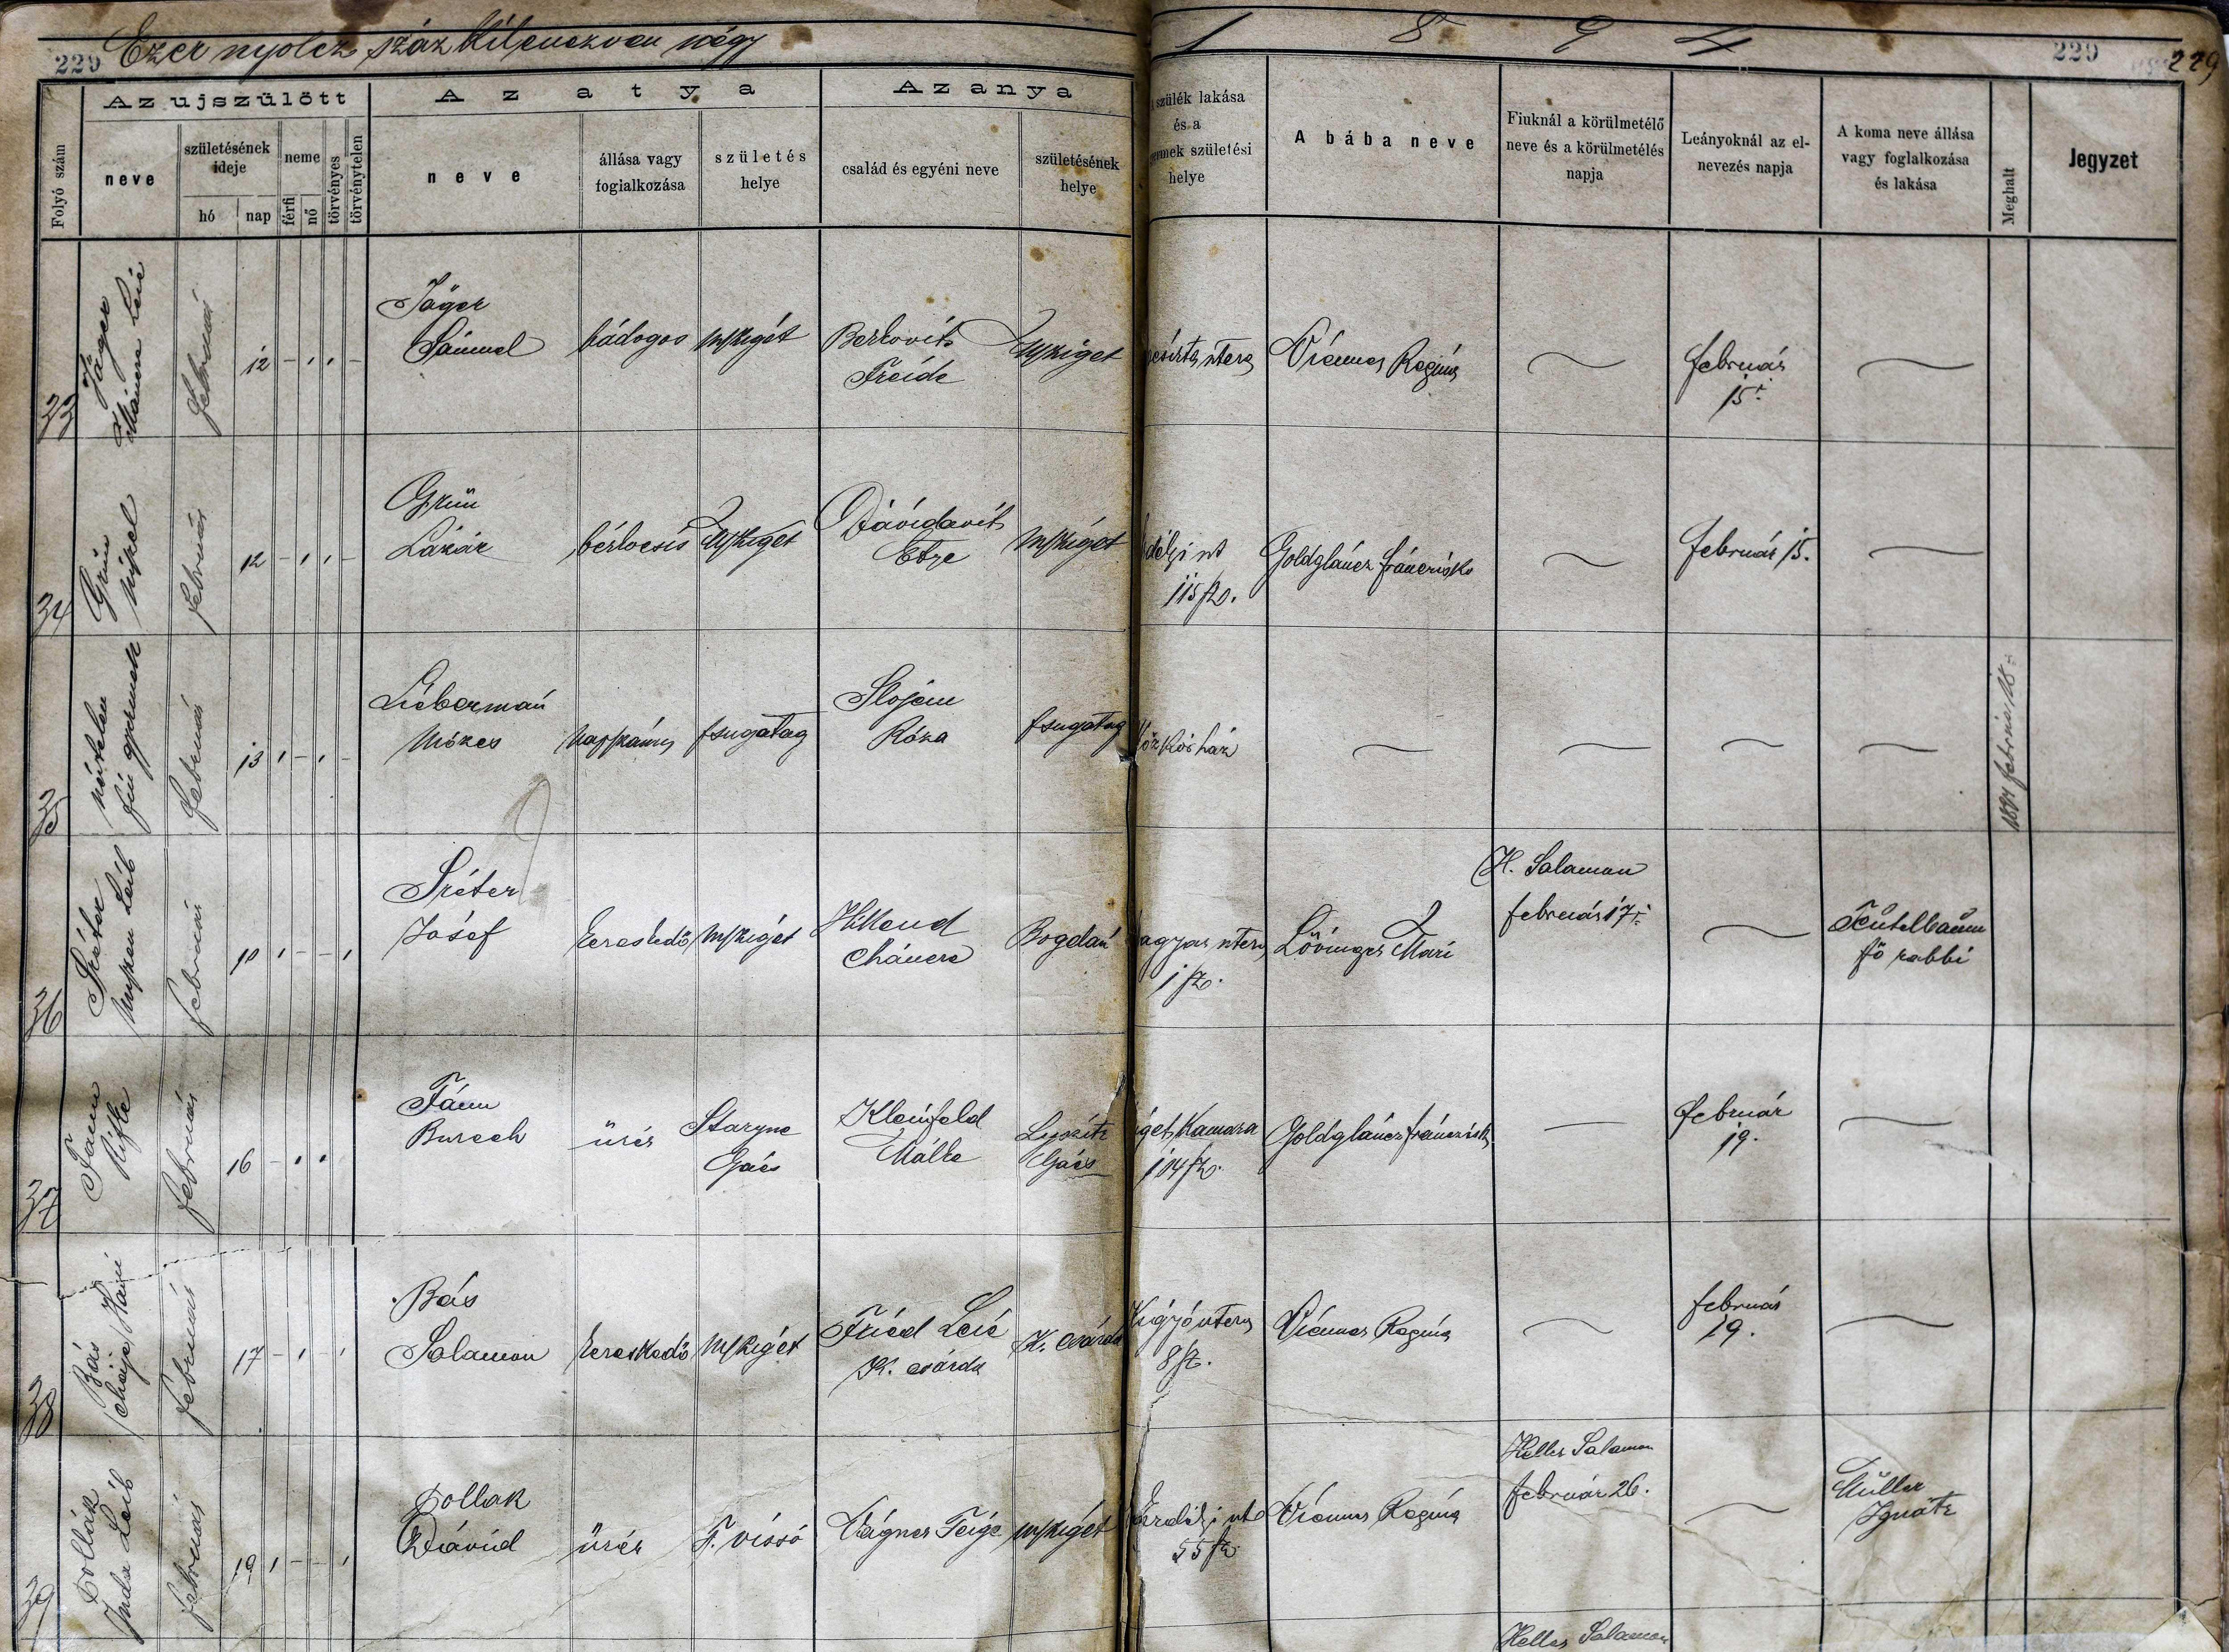 229 Ezer nyolcz száz kilenczven négy
1 8 9 4 229 229
Folyó szám
Az ujszülött
neve
születésének ideje
hó
nap
neme
férfi
nő
törvényes
törvénytelen
Az atya
neve
állása vagy foglalkozása
születés helye
Az anya
család és egyéni neve
születésének helye
szülék lakása
és a
születési
helye
A bába neve
Fiuknál a körülmetélő
neve és a körülmetélés
napja
Leányoknál az el-
nevezés napja
A koma neve állása
vagy foglalkozása
és lakása
Meghalt
Jegyzet
33
Jäger
Leie
február
12 - 1 1 -
Jäger
Sámuel
bádogos
M/Sziget
Berkovits
Freide
M/Sziget
utcza
Viemer Regina
február
15.
34
Grün
február
12 - 1 1 -
Grün
Lázár
bérkocsis
M/Sziget
Dávidovits
Etye
M/Sziget
délyi ut
115 sz.
Goldgláncz Francziska
február 15.
35
névtelen
fiu gyermek
február
13 1 - 1 -
Lieberman
Mózes
napszámos
Sugatag
Slojem
Róza
Sugatag
Közkórház
1894 február 18.
36
Sréter
Leib
február
10 1 - - 1
Sréter
József
kereskedő
M/Sziget
Chancze
Bogdan
agyar utcza
1 sz.
Lövinger Mari
H. Salamon
február 17.
Teitelbaum
fő rabbi
37
Fann
Rifke
február
16 - 1 1
Fann
Burech
üzér
Staryne
Gács
Kleinfeld
Málke
Gács
get Kamara
114 sz.
Goldgláncz Francziska
február
19.
38
Bás
Chaje Hani
február
17 - 1 - 1
Bás
Salamon
kereskedő
M/Sziget
Fried Leie
K. csárda
K. csárda
Kigyó utcza
8 sz.
Viemer Regina
február
19.
39
Pollák
Juda Leib
február
19 1 - - 1
Pollak
Dávid
üzér
F. vissó
Vágner Feige
M/Sziget
Erdélyi ut
55 sz.
Viemer Regina
Heller Salamon
február 26.
Müller
Ignátz
Heller Salamon